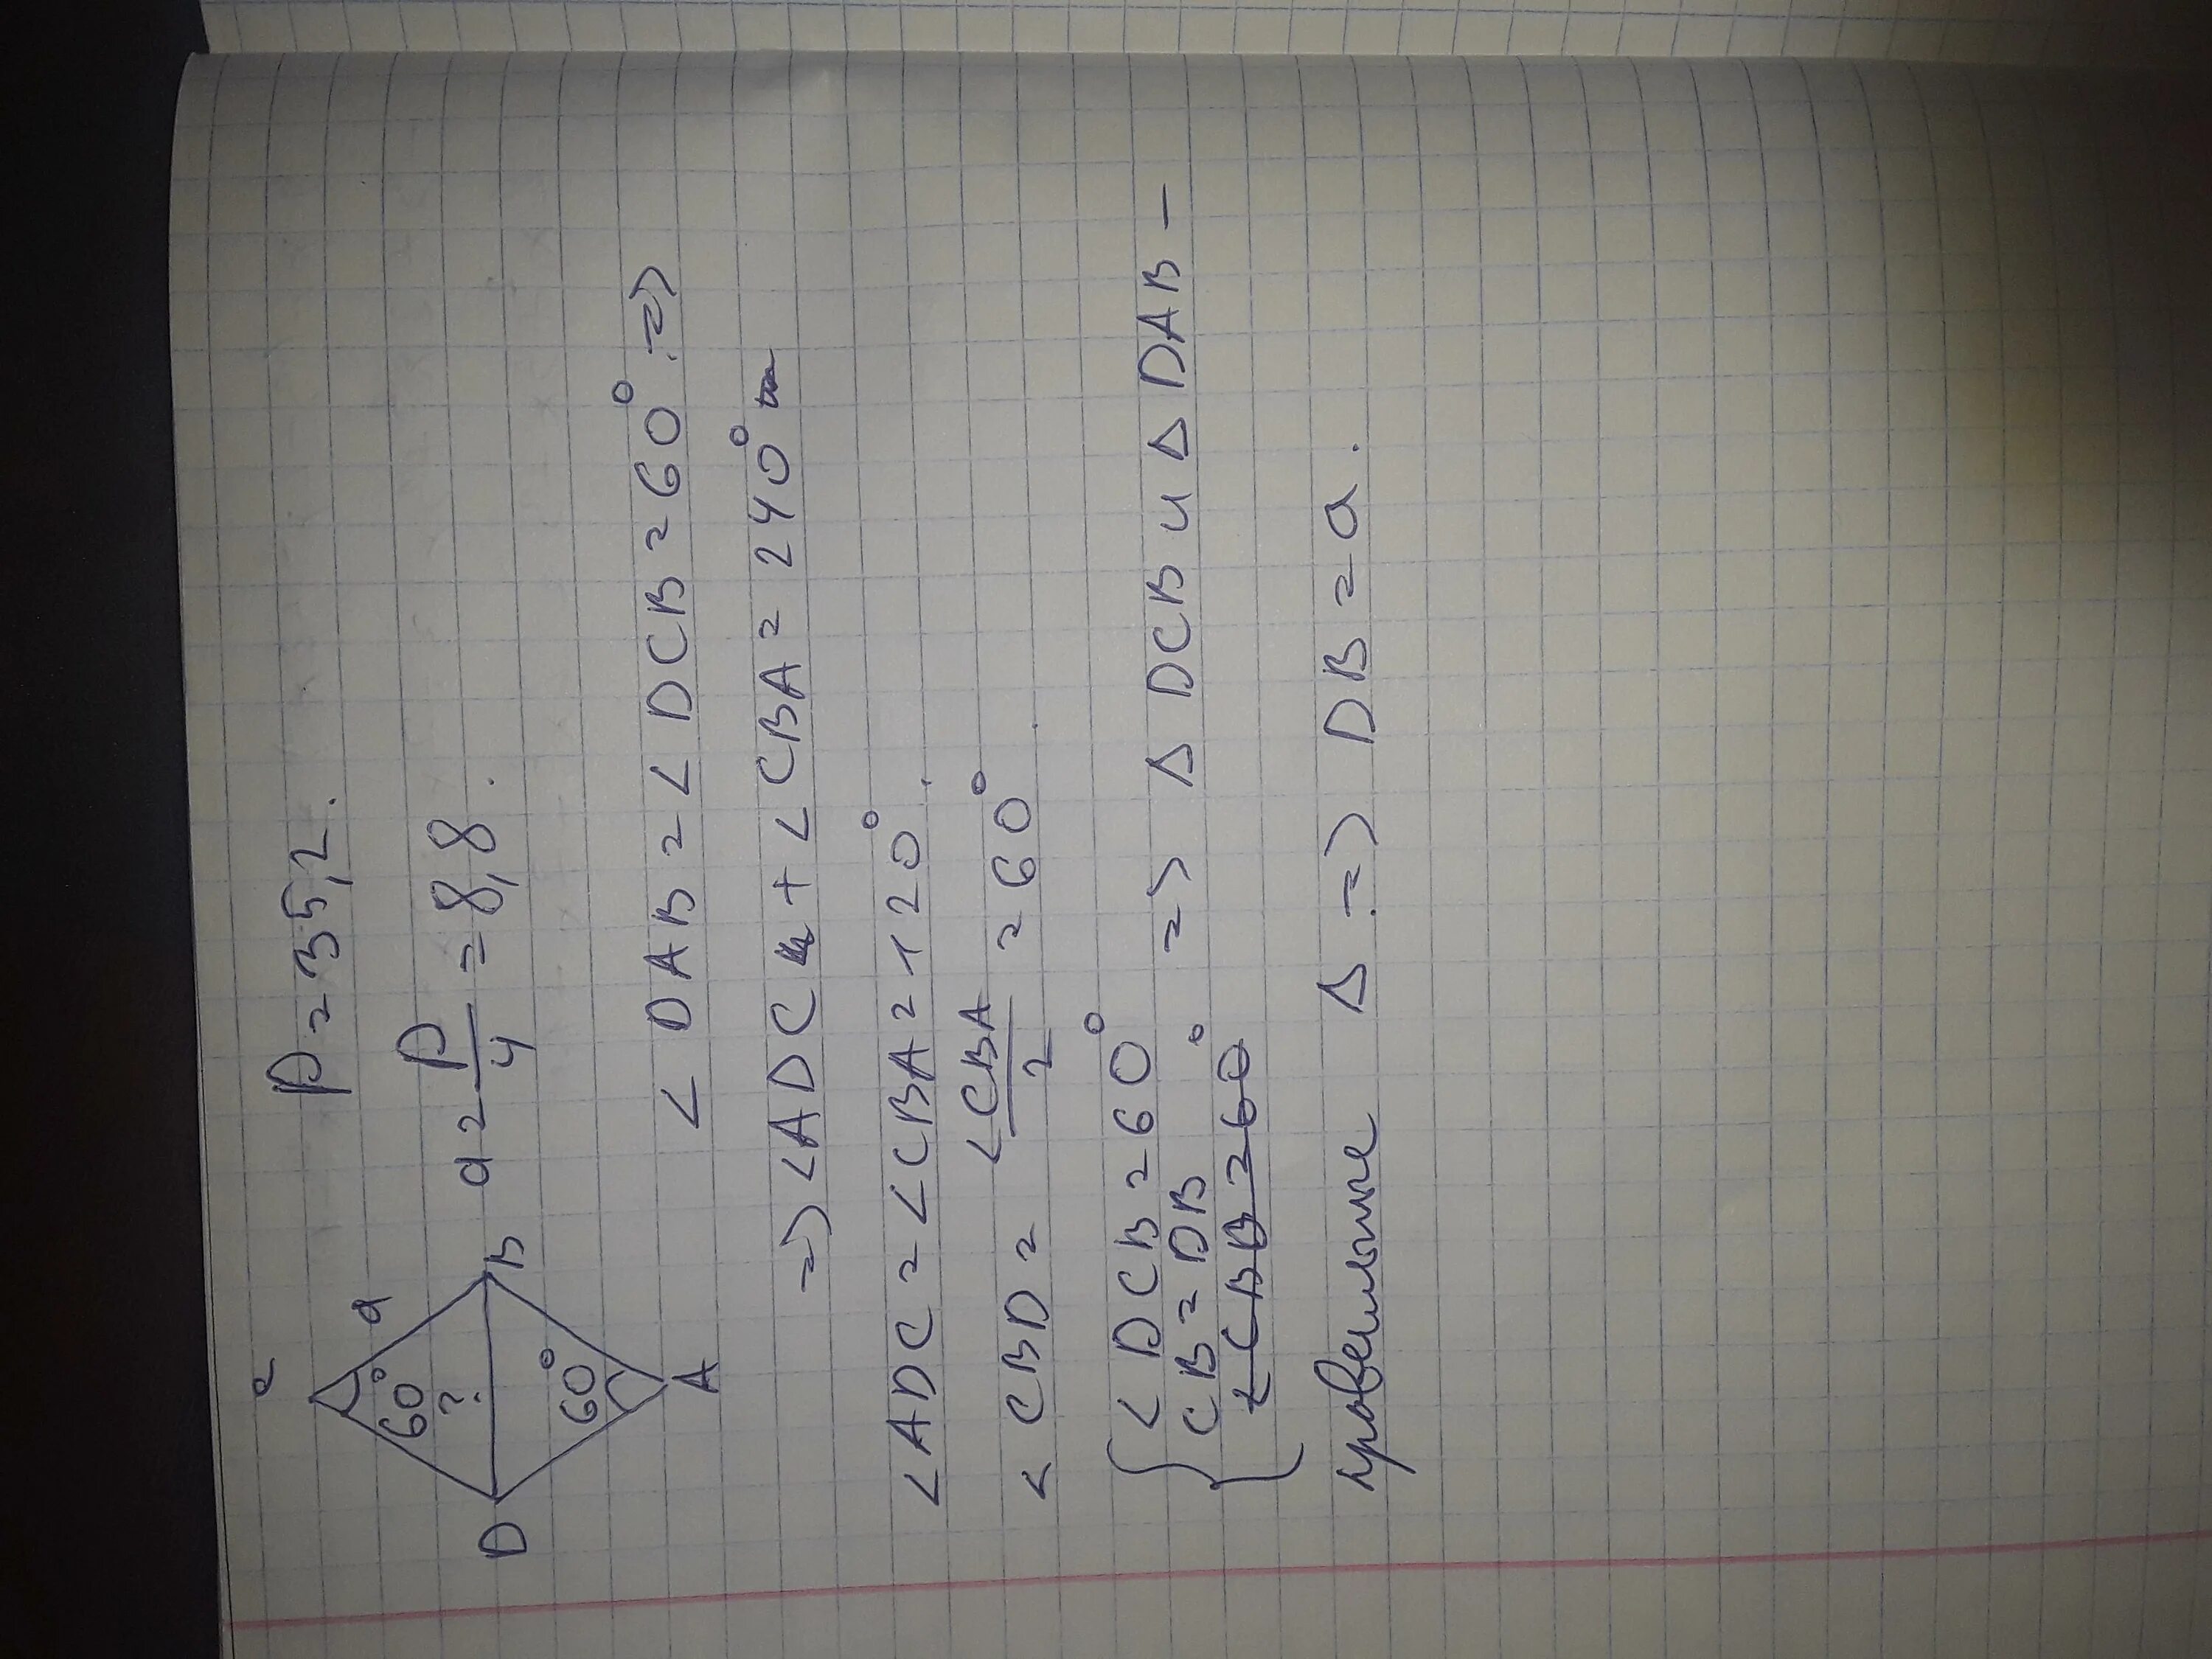 c
a
60°
?
D
B
60°
A
P = 35,2.
a = P/4 = 8,8.
< DAB = < DCB = 60° =>
=> < ADC + < CBA = 240°
< ADC = < CBA = 120°.
< CBD = < CBA/2 = 60°.
{ < DCB = 60°
CB = DB
< CBD = 60°
=> Δ DCB и Δ DAB -
Δ => DB = a.